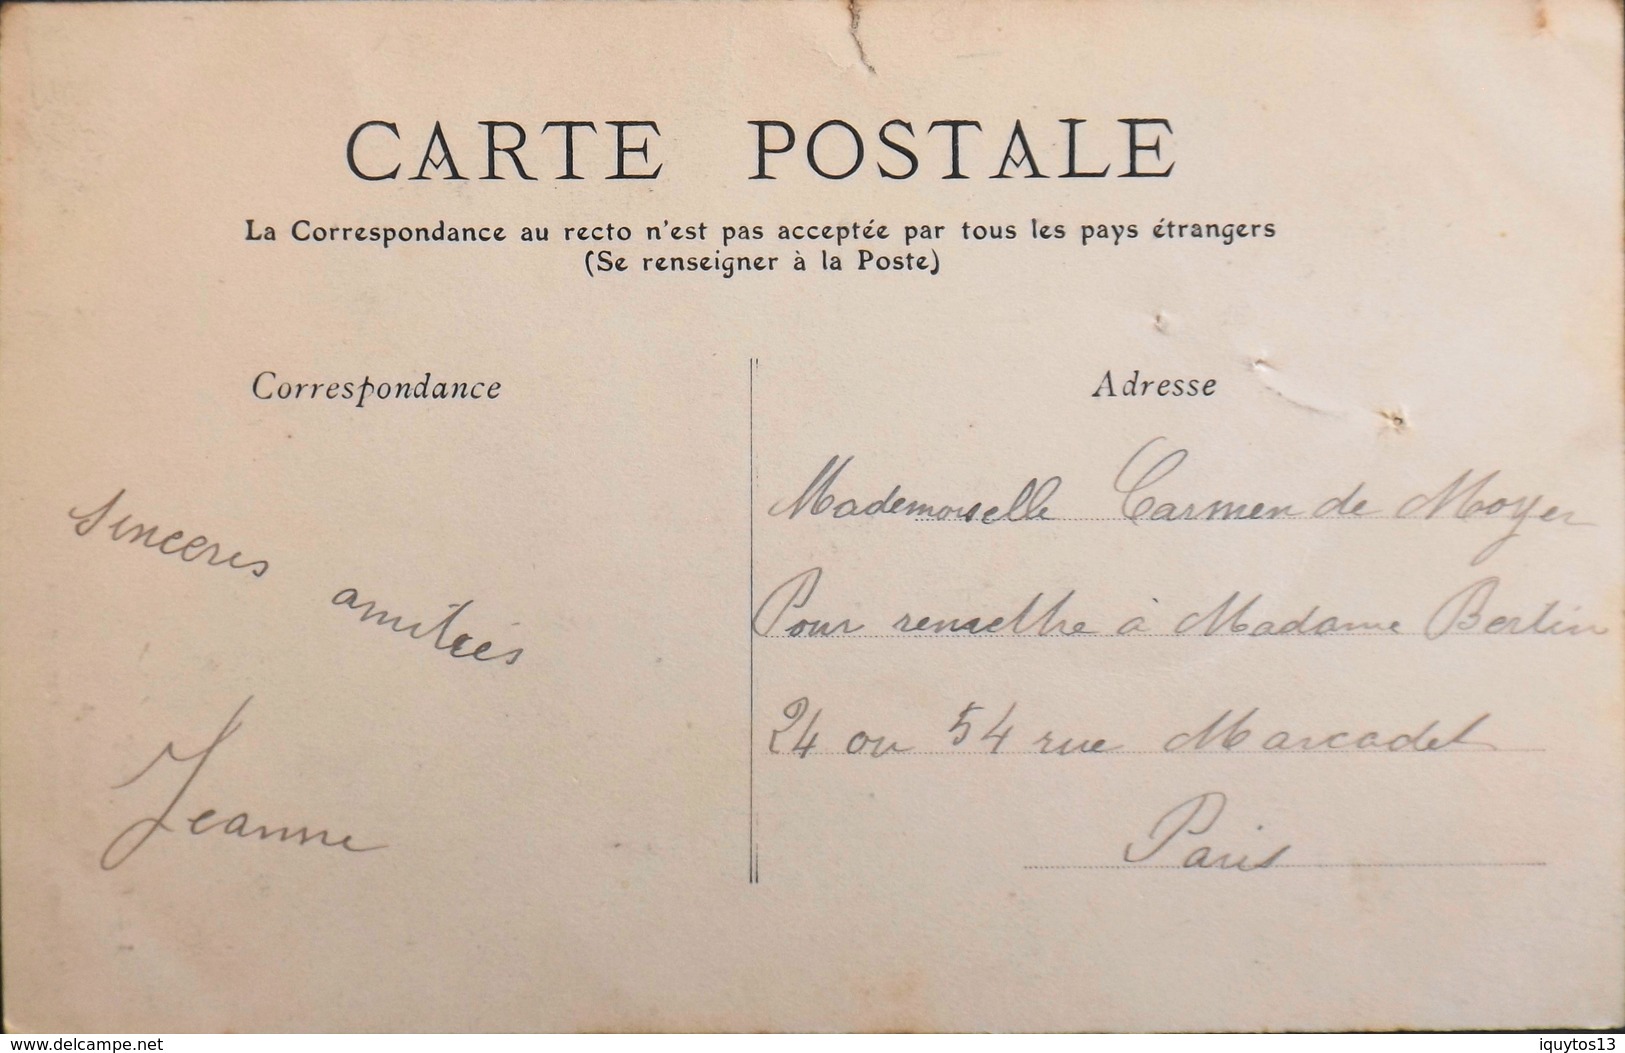 CARTE POSTALE
La Correspondance au recto n'est pas acceptée par tous les pays étrangers
(Se renseigner à la Poste)
Correspondance
sincères amitiés
Jeanne
Adresse
Mademoiselle Carmen de Moyer
Pour remetthe à Madame Bertin
24 ou 54 rue Marcadet
Paris
www.delcampe.net
iquytos13